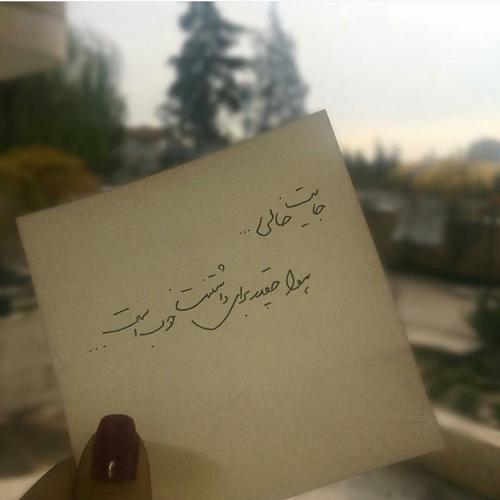 جایت خالی...
هوا چقدر برای داشتنت خوب است...